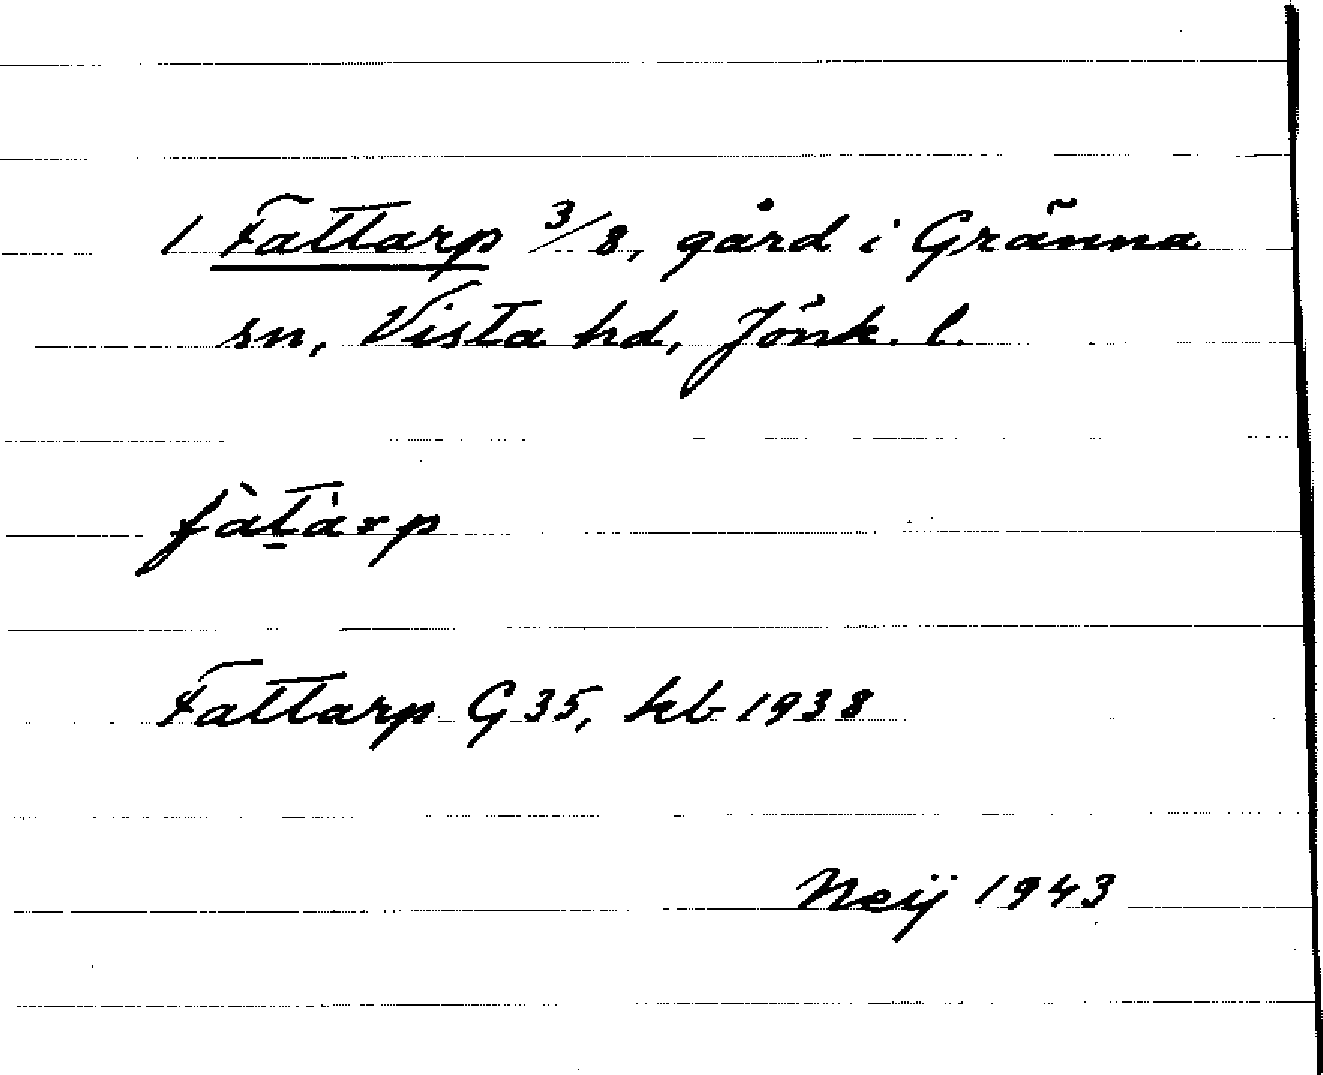 1 Fattarp 3/8, gård i Gränna
sn, Vista hd, Jönk. l.
fàt̠àrp
Fattarp G 35, kb 1938
Neij 1943